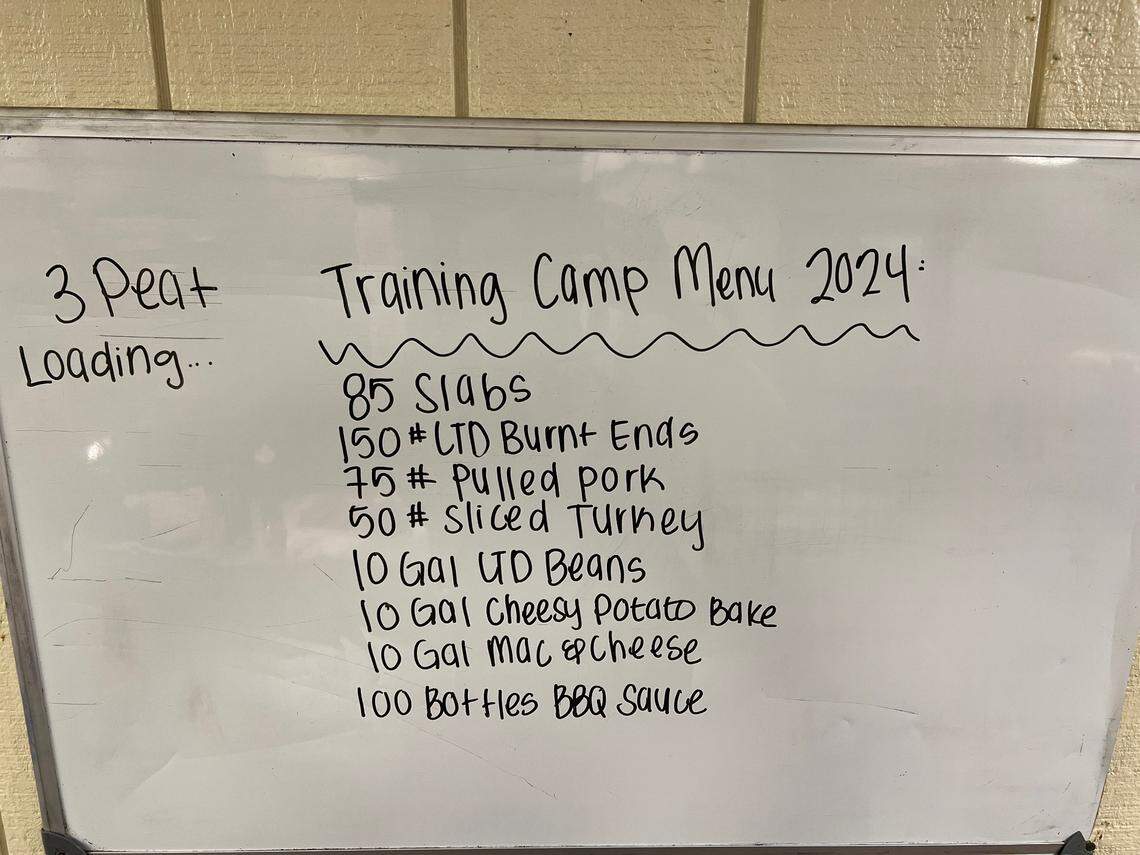 3 Peat
Loading...
Training Camp Menu 2024:
85 Slabs
150 # LTD Burnt Ends
75 # Pulled Pork
50 # Sliced Turkey
10 Gal LTD Beans
10 Gal Cheesy Potato Bake
10 Gal Mac & Cheese
100 Bottles BBQ Sauce